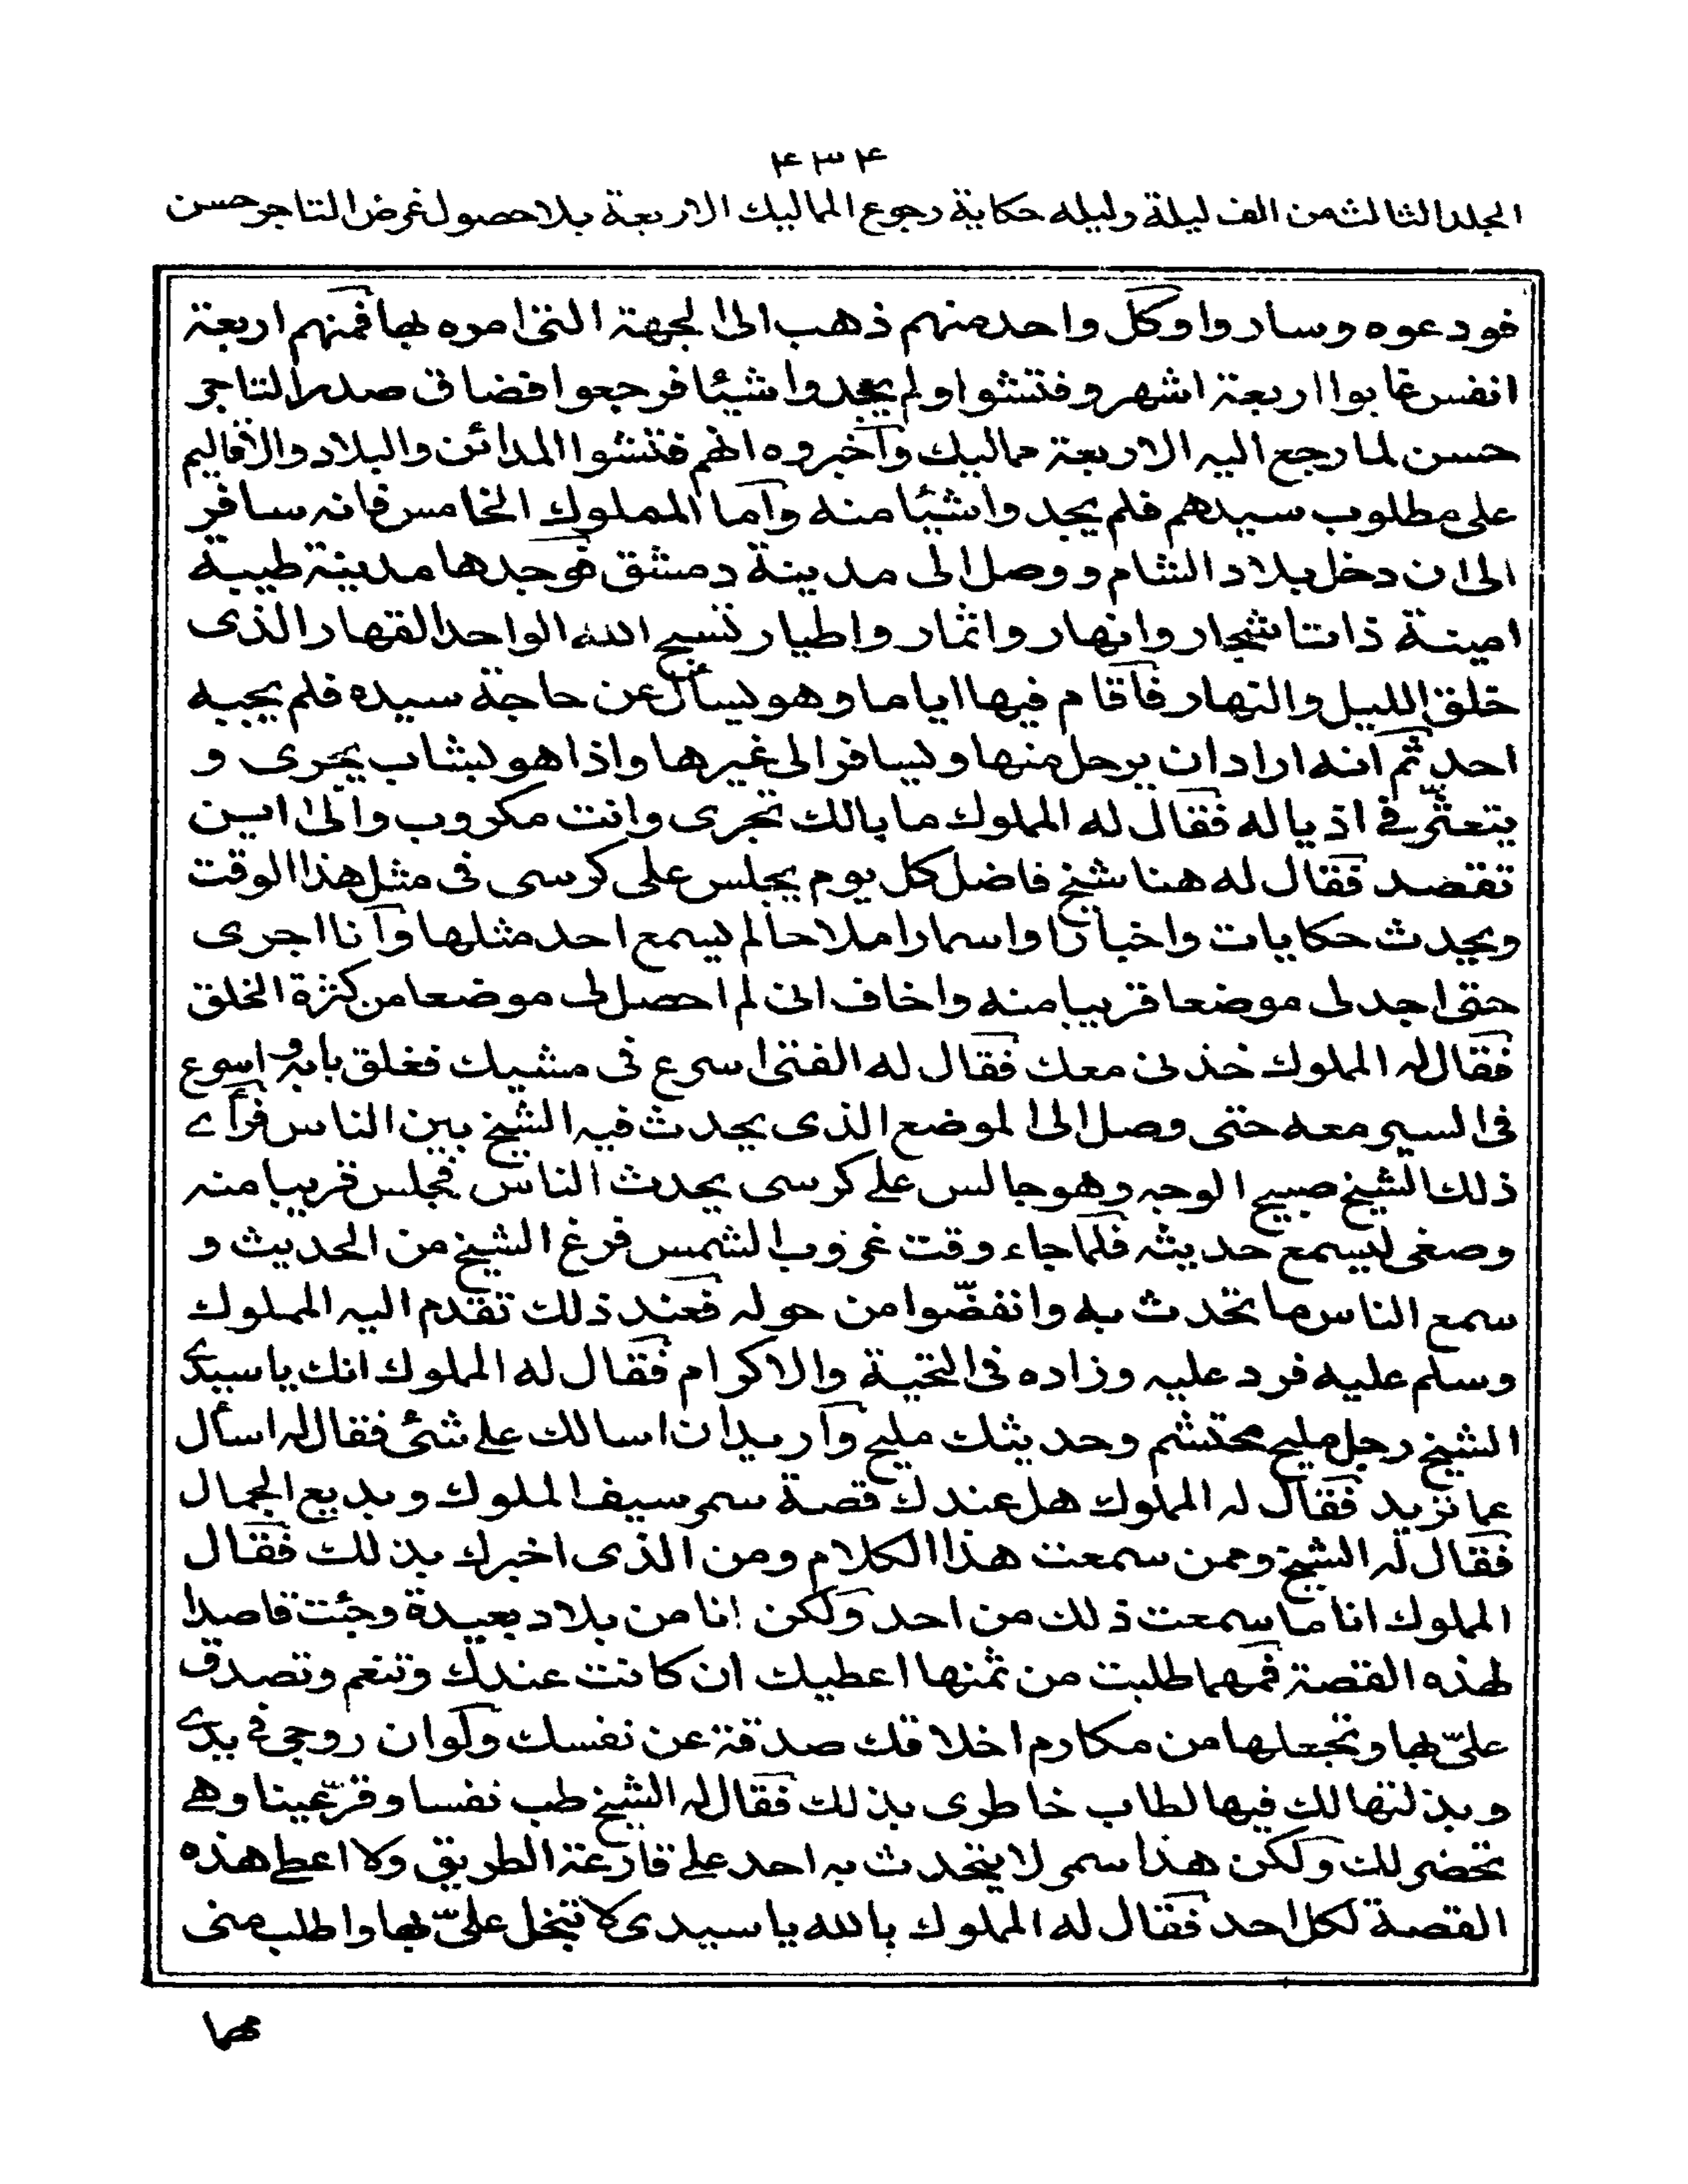 ۴۳۴
المجلد الثالث من الف ليلة وليله حكاية رجوع المماليك الاربعة بلا حصول غرض التاجر حسن
فودعوه وساروا وكل واحد منهم ذهب الى الجهة التى امره بها فمنهم اربعة
انفس غابوا اربعة اشهر وفتشوا ولم يجدوا شيئا فرجعوا فضاق صدر التاجر
حسن لما رجع اليه الاربعة مماليك وأخبروه انهم فتشوا المدائن والبلاد والاقاليم
على مطلوب سيدهم فلم يجدوا شيئا منه وأما المملوك الخامس فانه سافر
الى ان دخل بلاد الشام ووصل الى مدينة دمشق فوجدها مدينة طيبة
امينة ذات اشجار وانهار واثمار واطيار تسبح الله الواحد القهار الذى
خلق الليل والنهار فأقام فيها اياما وهو يسأل عن حاجة سيده فلم يجبه
احد ثم انه اراد ان يرحل منها ويسافر الى غيرها واذا هو بشاب يجرى و
يتعثر فى اذياله فقال له المملوك ما بالك تجرى وانت مكروب والى اين
تقصد فقال له هنا شيخ فاضل كل يوم يجلس على كرسى فى مثل هذا الوقت
ويحدث حكايات واخبارا واسمارا ملاحا لم يسمع احد مثلها وأنا اجرى
حتى اجد لى موضعا قريبا منه واخاف انى لم احصل لى موضعا من كثرة الخلق
فقال له المملوك خذنى معك فقال له الفتى اسرع فى مشيك فغلق بابه واسرع
فى السير معه حتى وصل الى الموضع الذى يحدث فيه الشيخ بين الناس فرأے
ذلك الشيخ صبيح الوجه وهو جالس علے كرسى يحدث الناس فجلس قريبا منه
وصغى ليسمع حديثه فلما جاء وقت غروب الشمس فرغ الشيخ من الحديث و
سمع الناس ما تحدث به وانفضّوا من حوله فعند ذلك تقدم اليه المملوك
وسلم عليه فرد عليه وزاده فى التحية والاكرام فقال له المملوك انك يا سيدے
الشيخ رجل مليح محتشم وحديثك مليح وأريد ان اسالك علے شئى فقال له اسأل
عما تريد فقال له المملوك هل عندك قصة سمر سيف الملوك وبديع الجمال
فقال له الشيخ وممن سمعت هذا الكلام ومن الذى اخبرك بذلك فقال
المملوك انا ما سمعت ذلك من احد ولكن انا من بلاد بعيدة وجئت قاصدا
لهذه القصة فمهما طلبت من ثمنها اعطيك ان كانت عندك وتنعم وتصدق
علىّ بها وتجعلها من مكارم اخلاقك صدقة عن نفسك ولوان روحى فى يدے
وبذلتها لك فيها لطاب خاطرى بذلك فقال له الشيخ طب نفسا وقرّ عينا وهے
تحضر لك ولكن هذا سمر لا يتحدث به احد علے قارعة الطريق ولا اعطے هذه
القصة لكل احد فقال له المملوك بالله يا سيدى لا تبخل علىّ بها واطلب منى
مهما